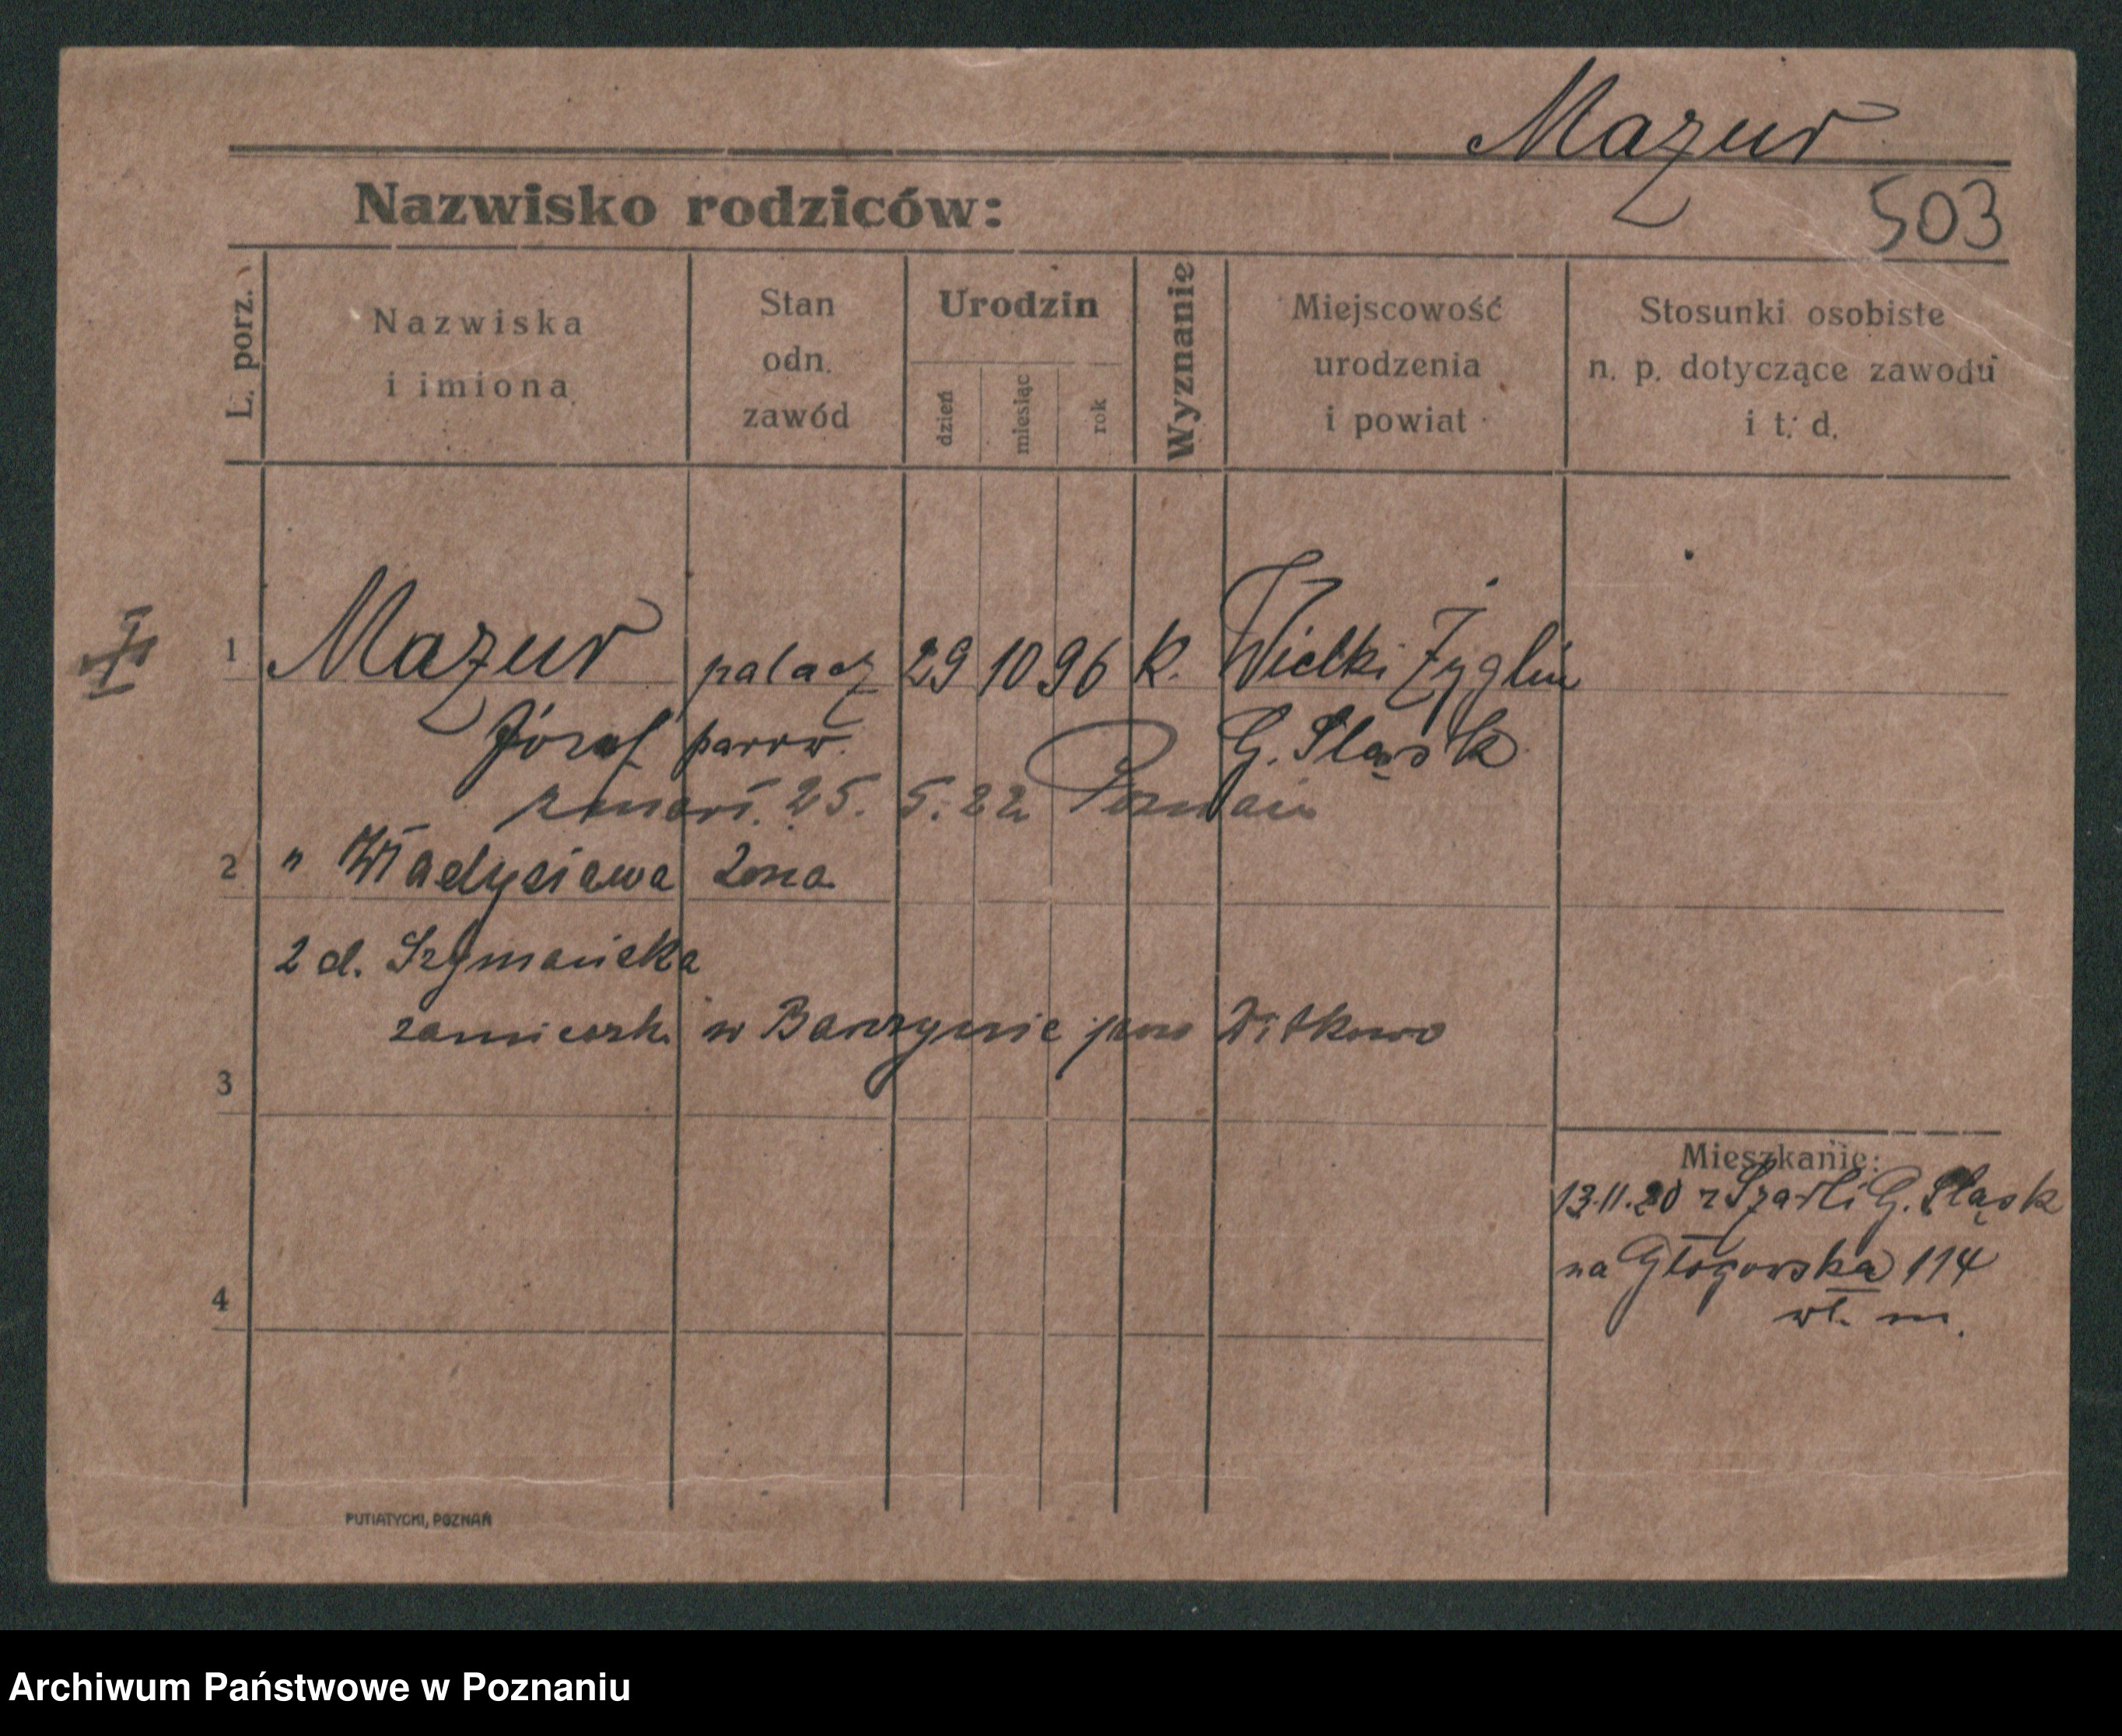 Mazur
Nazwisko rodziców:
503
L. porz.
Nazwiska i imiona
Stan odn. zawód
Urodzin
dzień
miesiąc
rok
Wyznanie
Miejscowość urodzenia i powiat
Stosunki osobiste n. p. dotyczące zawodu i t. d.
1 Mazur palacz 29 10 96 k. Wielki Żyglin
Józef parow. G. Śląsk
zmarł. 25. 5. 22 Poznań
2 " Władysława żona
2 d. Szymańska
zamieszk. w pow Witkowo
3
Mieszkanie:
13.11.20 z Szarli G. Śląsk
na Głogowska 114
4
wł. m.
PUTIATYCKI, POZNAŃ
Archiwum Państwowe w Poznaniu